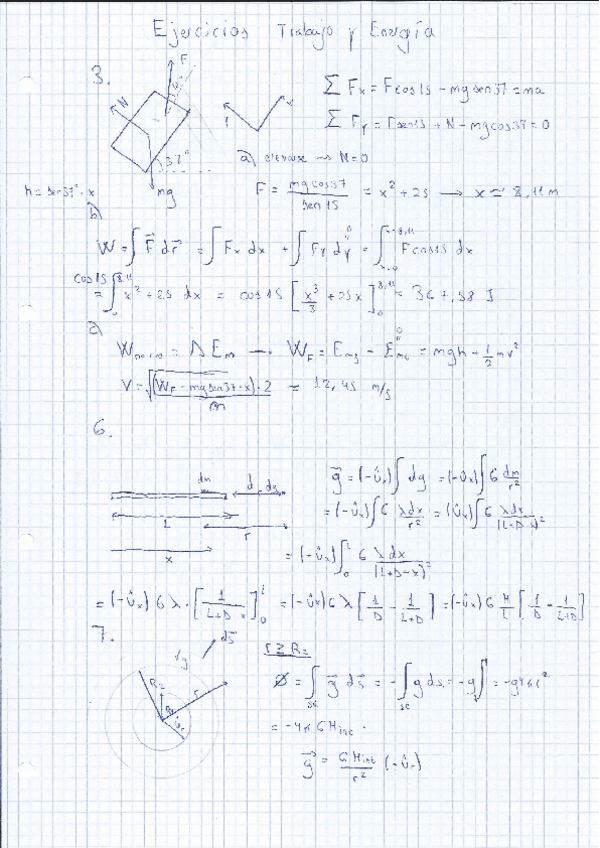 Ejercicios Trabajo y Energía
3.
F
15°
N
37°
mg
∑ Fx = F cos15 - mg sen37 = ma
∑ Fy = F sen15 + N - mg cos37 = 0
a) N=0
h = sen37° · x
F = mg cos37 / sen 15 = x² + 25 → x ≃ 8,11 m
b)
W = ∫ F⃗ dr⃗ = ∫ Fx dx + ∫ Fy dy = ∫ F cos15 dx
= cos15 ∫ x² + 25 dx = cos15 [x³/3 + 25x] = 367,58 J
W = ΔEm → W_F = Em - Em = mgh + ½mv²
V = √((W_F - mg sen37·x)·2 / m) = 12,45 m/s
6.
dm
d
dg
L
r
x
g⃗ = (-û) ∫ dg = (-ûx) ∫ G dm/r²
= (-ûx) ∫ G λdx/r² = (ûx) ∫ G λdx/(L+D-x)²
= (-ûx) ∫₀ᴸ G λdx/(L+D-x)²
= (-ûx) G λ · [1/(L+D-x)]₀ᴸ = (-ûx) G λ [1/D - 1/(L+D)] = (-ûx) G M/L [1/D - 1/(L+D)]
7.
ds⃗
g
r
r ≥ R₂
Ø = ∫ g⃗ ds⃗ = -∫ g ds = -g ∫ = -g4πr²
= -4πG Mint
g⃗ = G Mint / r² (-ûr)